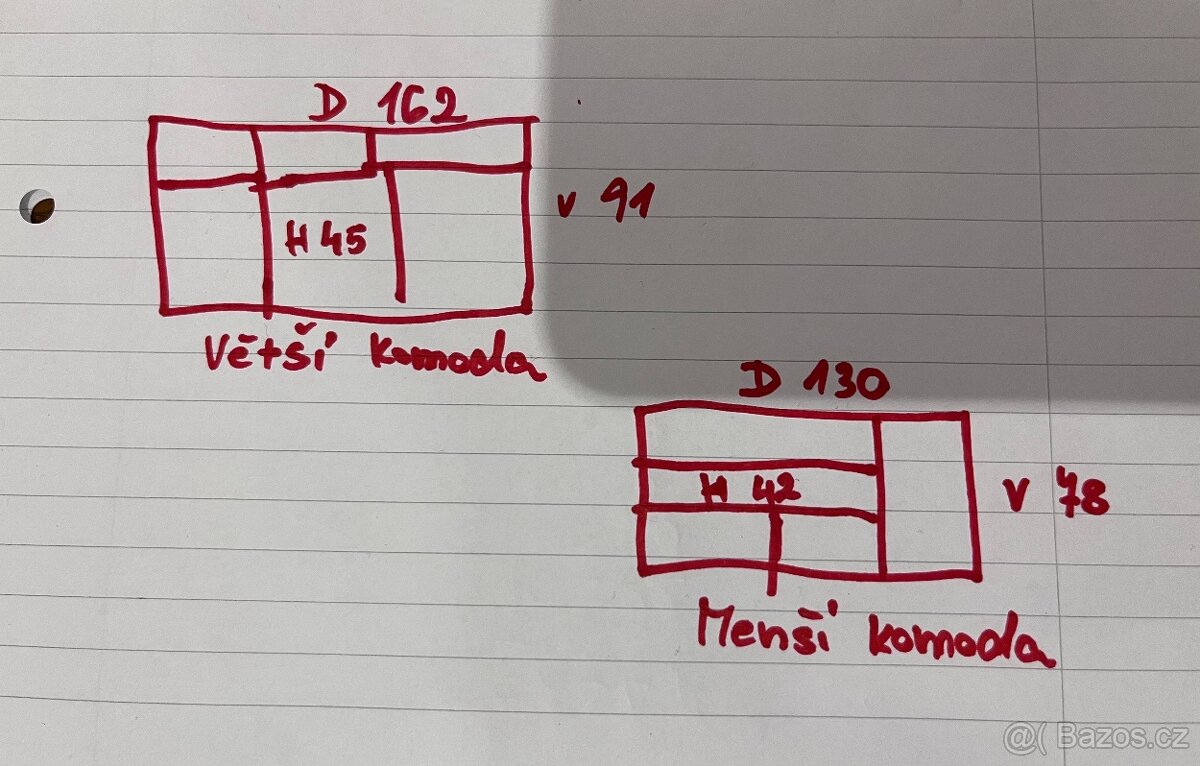 D 162
v 91
H 45
Větší komoda
D 130
H 42
v 78
Menší komoda
@( Bazos.cz